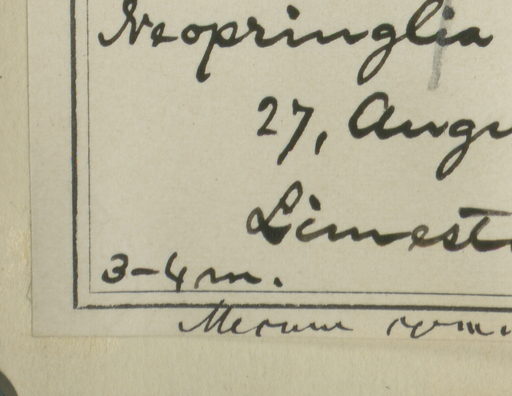 Neopringlia
27, Augu
Limest
3-4 m.